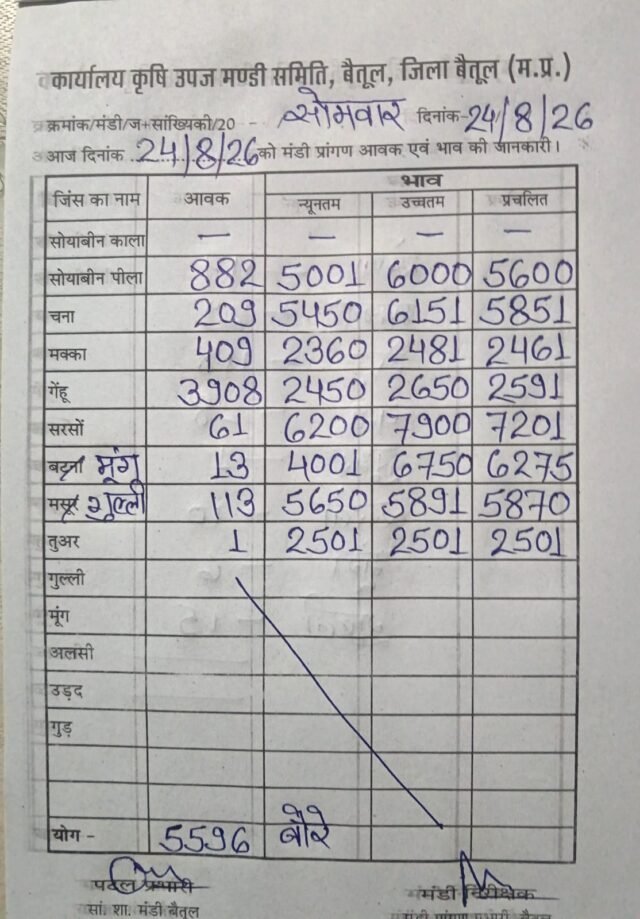 कार्यालय कृषि उपज मण्डी समिति, बैतूल, जिला बैतूल (म.प्र.)
क्रमांक/मंडी/ज+सांख्यिकी/20 - सोमवार दिनांक 24/8/26
आज दिनांक 24/8/26 को मंडी प्रांगण आवक एवं भाव की जानकारी।
जिंस का नाम आवक भाव
न्यूनतम उच्चतम प्रचलित
सोयाबीन काला — — — —
सोयाबीन पीला 882 5001 6000 5600
चना 209 5450 6151 5851
मक्का 409 2360 2481 2461
गेंहू 3908 2450 2650 2591
सरसों 61 6200 7900 7201
मूंग 13 4001 6750 6275
मसूर गुल्ली 113 5650 5891 5870
तुअर 1 2501 2501 2501
गुल्ली
मूंग
अलसी
उड़द
गुड़
योग - 5596 बोरे
प्रभारी मंडी निरीक्षक
सां. शा. मंडी बैतूल